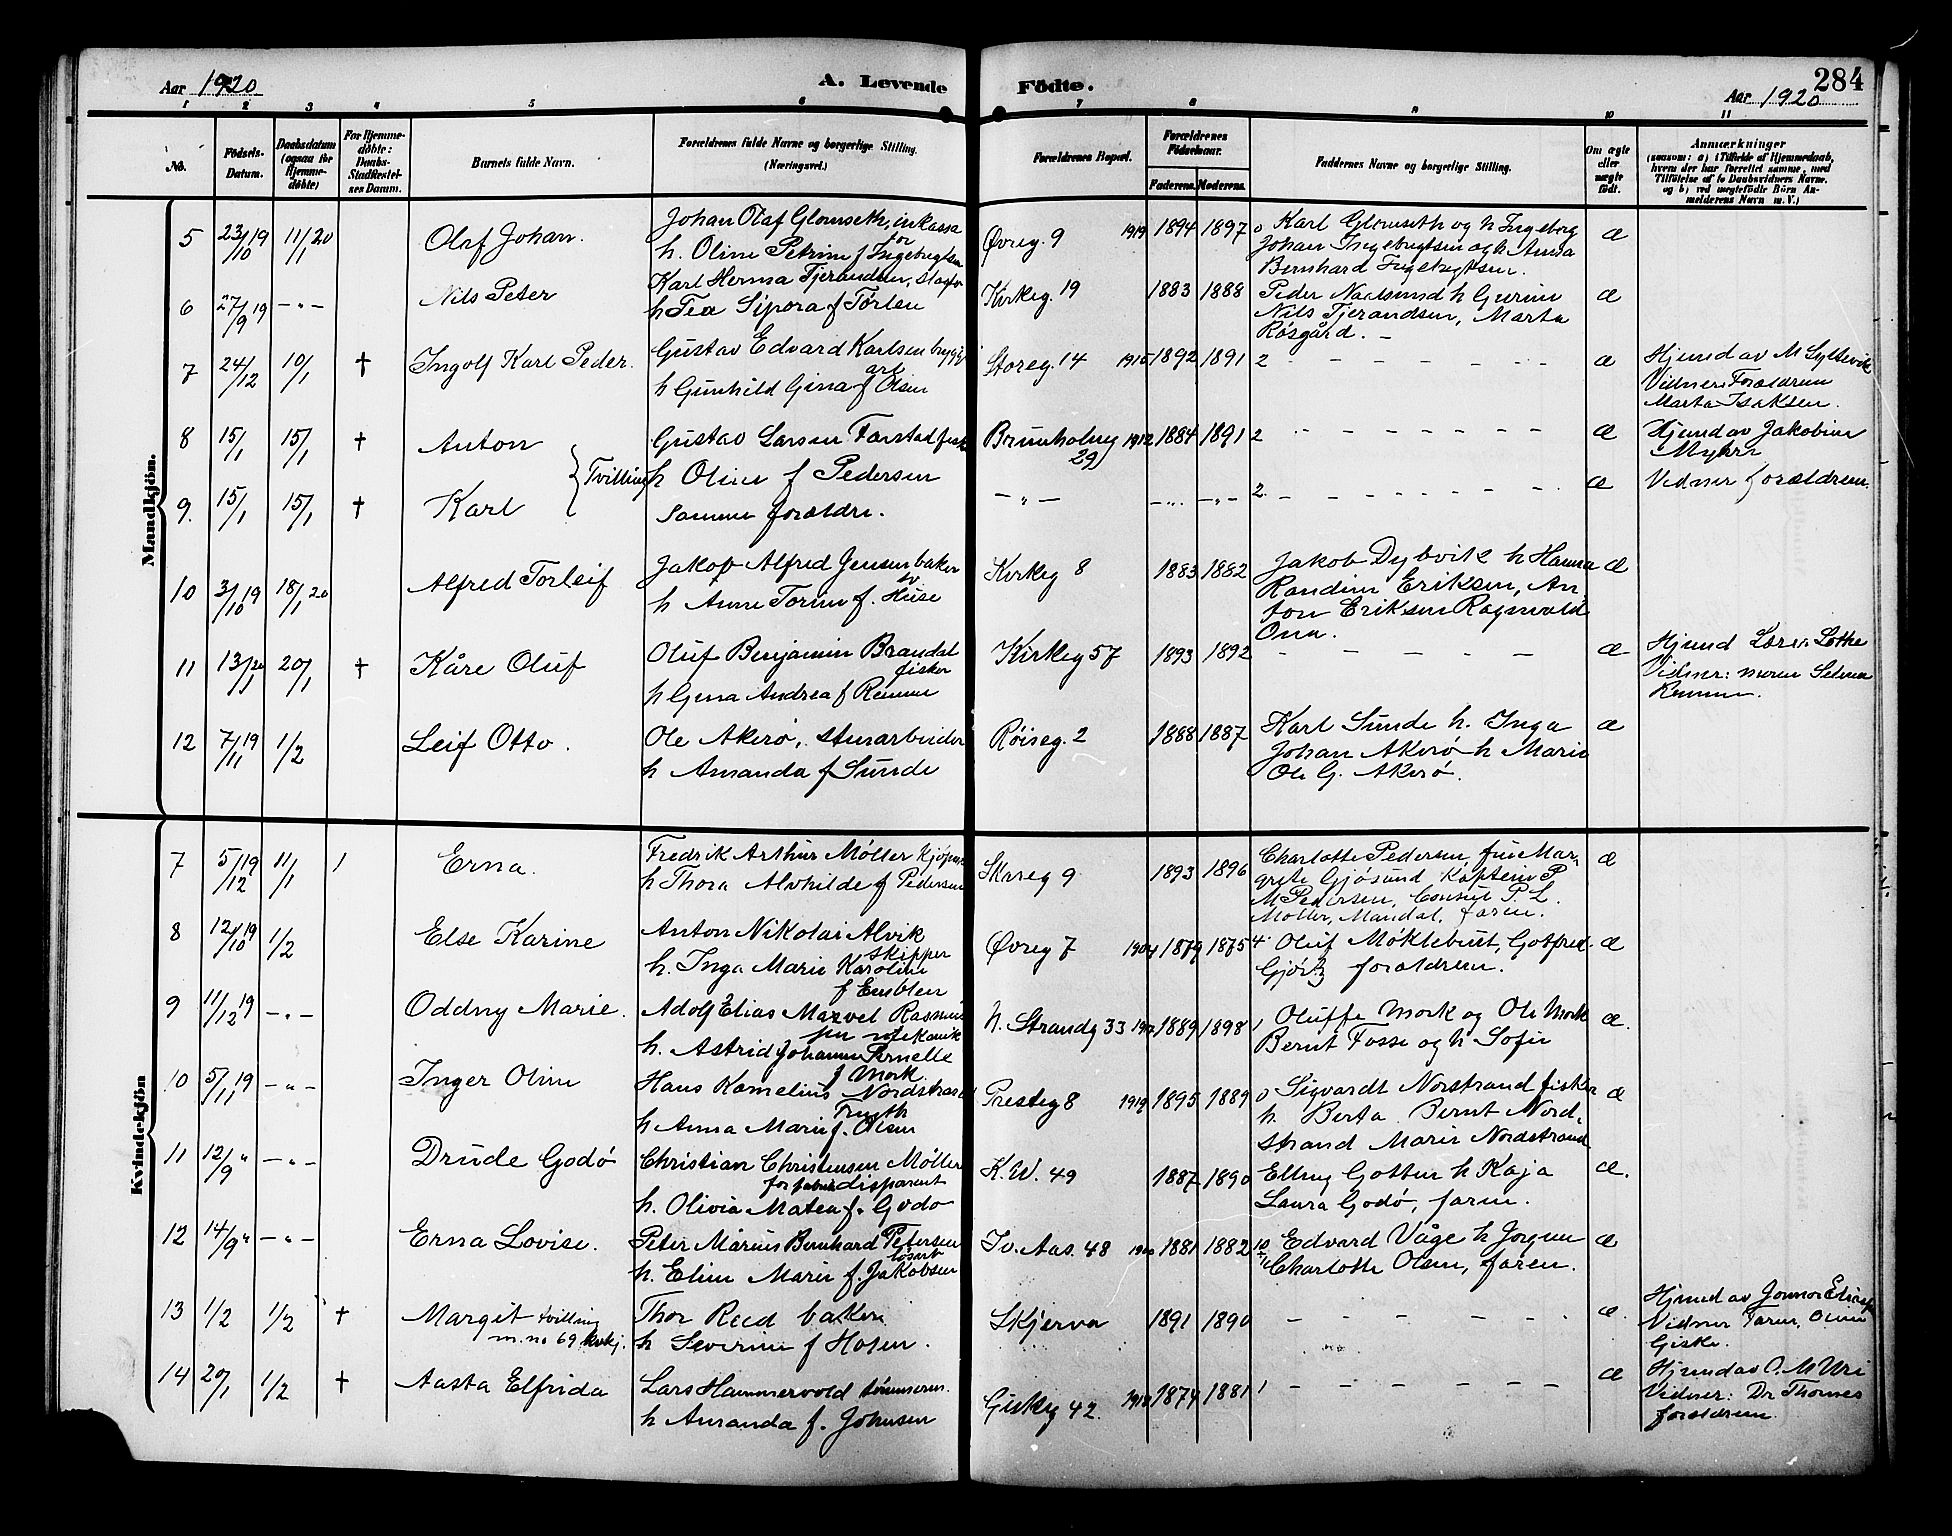 Aar 1920
A. Levende Födte.
284
Aar 1920
1 2 3 4 5 6 7 8 9 10 11
No.
Födsels-Datum.
Daabsdatum (ogsaa for Hjemme-döbte)
For Hjemme-döbte: Daabs-Stadfæstel-ses Datum.
Barnets fulde Navn.
Forældrenes fulde Navne og borgerlige Stilling. (Næringsvei.)
Forældrenes Bopæl.
Forældrenes Födselsaar.
Faderens. Moderens.
Faddernes Navne og borgerlige Stilling.
Om ægte eller uægte födt.
Anmærkninger
(saasom: a) i Tilfælde af Hjemmedaab, hvem der har forrettet samme, med Tilföielse af to Daabsvidners Navne, og b) ved uægtefödte Börn Anmelderens Navn m. V.)
Mandkjön.
5 23/10 19 11/1 20 Olaf Johan. Johan Olaf Glomseth, inkassa
h. Oline Petrine f Ingebrigtsen Øvreg. 9 1919 1894 1897 0 Karl Glomseth og h Ingeborg
Johan Ingebrigtsen og h. Anna
Bernhard Ingebrigtsen. æ
6 27/9 19 -"- Nils Peter Karl Herma Tjerandsen,
h Tea Sipora f Törlen Kirkeg. 19 1883 1888 Peder h Gurine
Nils Tjerandsen, Marta
Røsgård. - æ
7 24/12 10/1 † Ingolf Karl Peder. Gustav Edvard Karlsen bryggeri
arb
h Gunhild Gina f Olsen Storeg. 14 1892 1891 2 - - - - - æ Hjemd av M Syltevik
Vidner: Forældrene
Marta Isaksen.
8 15/1 15/1 † Anton Gustav Larsen Farstad fisk
Tvilling h Oline f Pedersen Brunholmg 29 1912 1884 1891 2 - - - - - æ Hjemd av Jakobine
Myhre
9. 15/1 15/1 † Karl Samme forældre. -"- -"- -"- 2. - - - - - æ Vidner forældrene.
10 3/10 19 18/1 20 Alfred Torleif Jakop Alfred Jensen baker
h Anne Torine f. Huse Kirkeg 8 1883 1882 Jakob Dybvik h Hanna
Randine Eriksen, An
ton Eriksen Ragnvald
Ona. æ
11 13/1 20 20/1 † Kåre Oluf Oluf Benjamin Brandal
fisker
h Gina Andrea f Remme Kirkeg 57 1893 1892 - - - - - æ Hjemd Lothe
Vidner: moren Selma
Remme.
12 7/11 19 1/2 Leif Otto. Ole Akerø, stuearbeider
h Amanda f Sunde Røiseg. 2 1888 1887 Karl Sunde h. Inga
Johan Akerø h Marie
Ole G. Akerø. æ
Kvindekjön
7 5/12 19 11/1 1 Erna. Fredrik Arthur Møller Kjøpm
h Thora Alvhilde f Pedersen Skareg 9 1893 1896 Charlotte Pedersen, frue Mar-
grete Gjøsund Kaptein P
M Pedersen, Consul P. L.
Møller, Mandal, faren. æ
8 12/10 19 1/2 Else Karine Anton Nikolai Alvik
skipper
h. Inga Marie Karoline
f Emblem Øvreg 7 1904 1879 1875 4 Oluf Møklebust, Gotfred
Gjørtz forældrene. æ
9 11/12 19 -"- Oddny Marie. Adolf Elias Marvel Rasmus
sen mekanik
h. Astrid Johanne Pernelle
f Mork. N. Strandg 33 1889 1898 1 Oluffe Mork og Ole Mork
Bernt Fosse og h Sofie æ.
10 5/11 19 -"- Inger Oline Hans Kornelius Nordstrand
h Anna Marie f. Olsen Presteg 8 1919 1895 1889 0 Sigvardt Norstrand fisker
h. Berta Bernt Nord-
strand Marie Nordstrand æ
11 12/9 " -"- Drude Godø Christian Christensen Møller
forfabrikdisponent
h. Olivia Matea f. Godø K. W. 49 1887 1890 Elling h Kaja
Laura Godø, faren. æ.
12 14/9 " -"- Erna Lovise. Peter Marius Bernhard Petersen
løsarb
h. Eline Marie f. Jakobsen Iv. Aas. 48 1881 1882 Edvard Våge h Jørgine
Charlotte Olsen, faren. æ
13 1/2 1/2 † Margit tvilling
m. no 69 kvkj. Thor Reed baker
h Severine f Hosen. Skjerva 1891 1890 - - - - - æ Hjemd av
Vidner Faren, Oline
Giske.
14 20/1 1/2 † Aasta Elfrida Lars Hammervold tømmerm.
h Amanda f. Johnsen Giskeg 42. 1910 1874 1881 1 - - - - - æ Hjemd av O. M Uri
Vidner: Dr Thomes
forældrene.